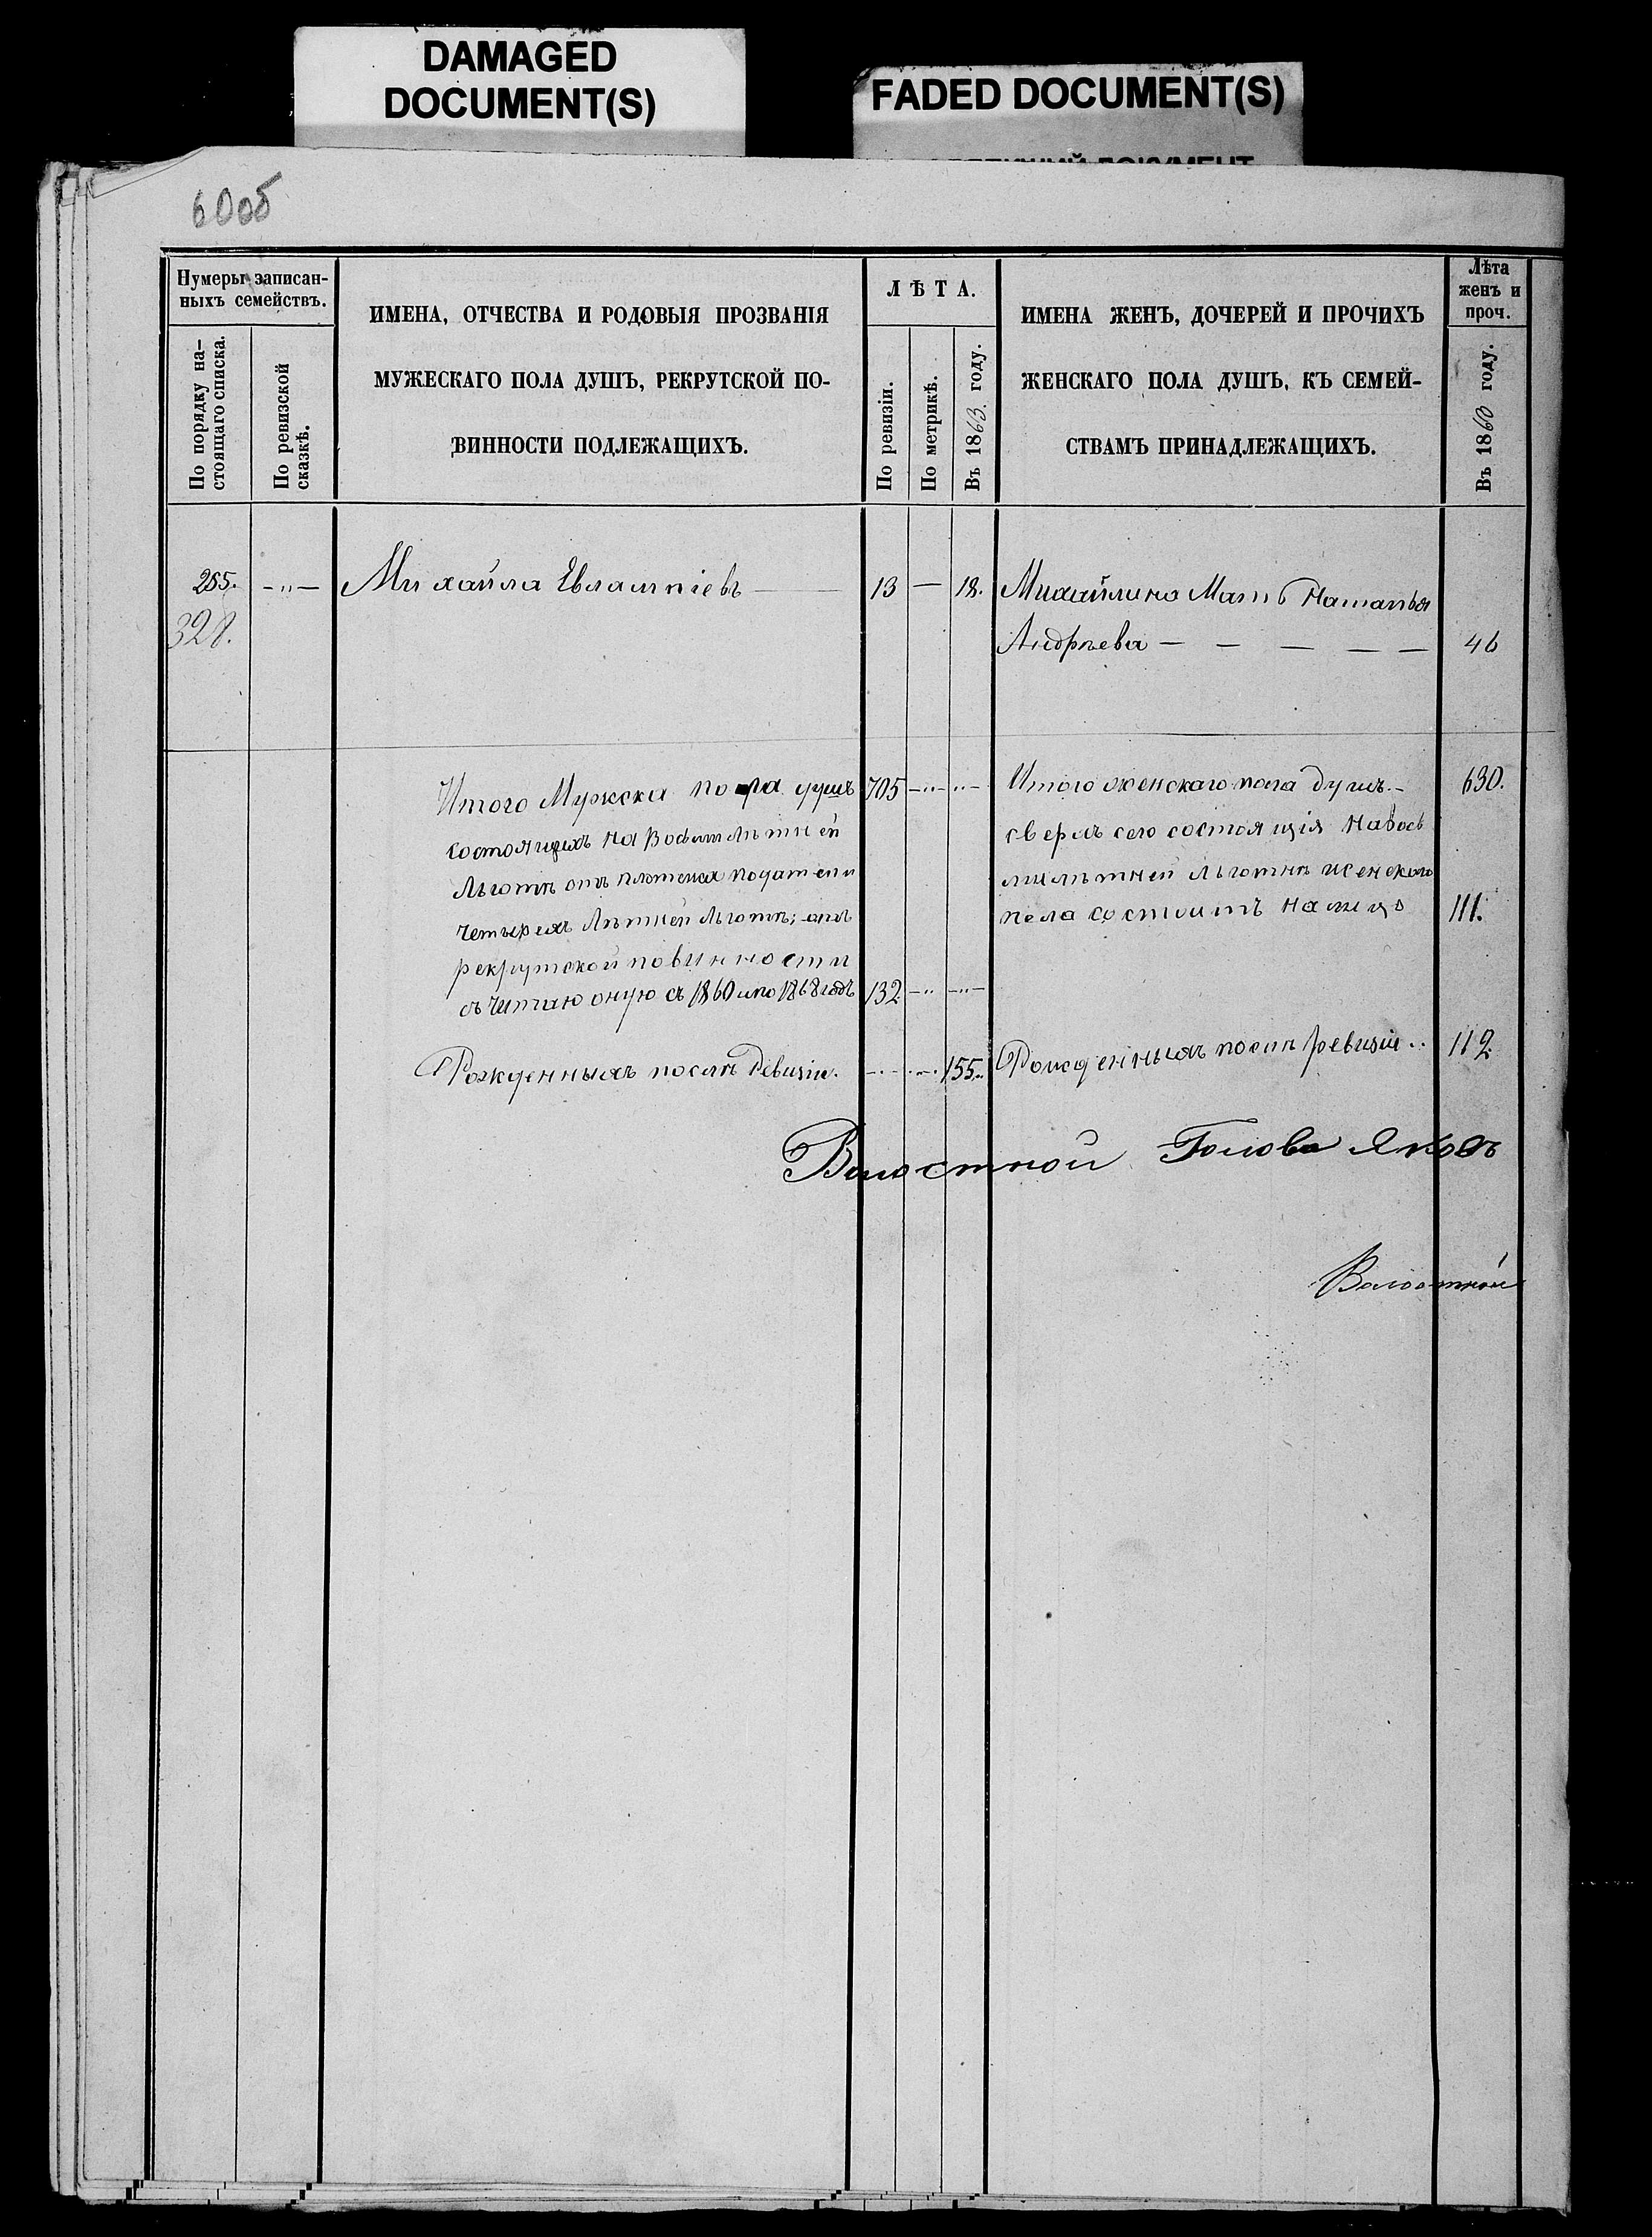 DAMAGED
DOCUMENT(S)
FADED DOCUMENT(S)
60об
Нумеры записан-
ныхъ семействъ.
По порядку на-
стоящаго списка.
По ревизской
сказкѣ.
ИМЕНА, ОТЧЕСТВА И РОДОВЫЯ ПРОЗВАНІЯ
МУЖЕСКАГО ПОЛА ДУШЪ, РЕКРУТСКОЙ ПО-
ВИННОСТИ ПОДЛЕЖАЩИХЪ.
ЛѢТА.
По ревизіи.
По метрикѣ.
Въ 1863 году.
ИМЕНА ЖЕНЪ, ДОЧЕРЕЙ И ПРОЧИХЪ
ЖЕНСКАГО ПОЛА ДУШЪ, КЪ СЕМЕЙ-
СТВАМЪ ПРИНАДЛЕЖАЩИХЪ.
Лѣта
женъ и
проч.
Въ 1860 году.
255. -"- Михайла Евлампіевъ — 13 — 18. Михайлина Мать Наталья
328.
Андрѣева — — — — — 46
Итого Мужска пола душъ 705 -"- -"- Итого женскаго пола душъ.- 630.
состоящихъ на Восьмилѣтней
сверхъ сего состоящія на вось
Льготѣ отъ платежа податей и
милѣтней льготѣ женскаго
четырехъ Лѣтней Льготѣ; отъ
пола состоитъ на лицо 111.
рекрутской повинности
съчитаю оную съ 1860 и по 1868 годъ 132 -"- -"-
Рожденныхъ послѣ Ревизіи. -"- -"- 155. Рожденныхъ послѣ ревизіи .. 112
Волостной Голова Яковъ
Волостной